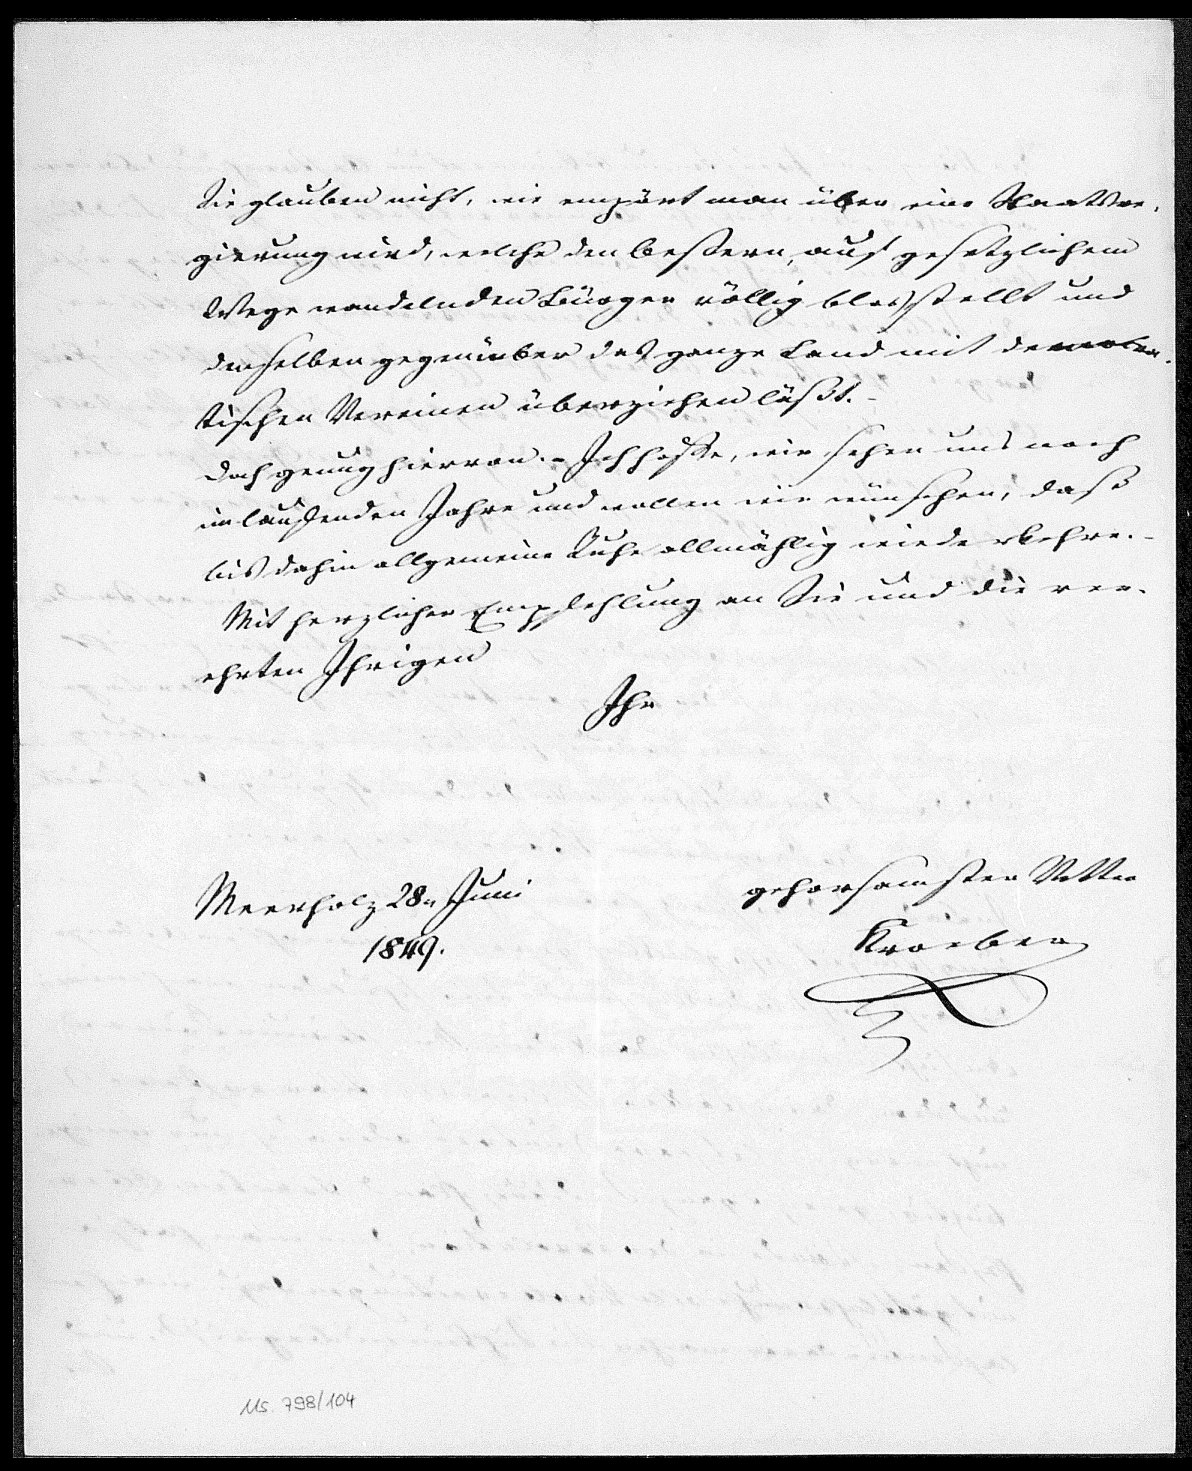 Sie glauben nicht, wie empört man über eine Staatsre-
gierung wird, welche den bessern, auf gesetzlichem
Wege wandelnden Bürger völlig blosstellt und
demselben gegenüber das ganze Land mit demokra-
tischen Vereinen überziehen läßt. -
Doch genug hiervon. - Ich hoffe, wir sehen uns noch
im laufenden Jahre und wollen wir wünschen, daß
bis dahin allgemeine Ruhe allmählig wiederkehre. -
Mit herzlicher Empfehlung an Sie und die ver-
ehrten Ihrigen
Ihr
gehorsamster Vetter
Kroeber
Meerholz 28n Juni
1849.
Ms. 798/104